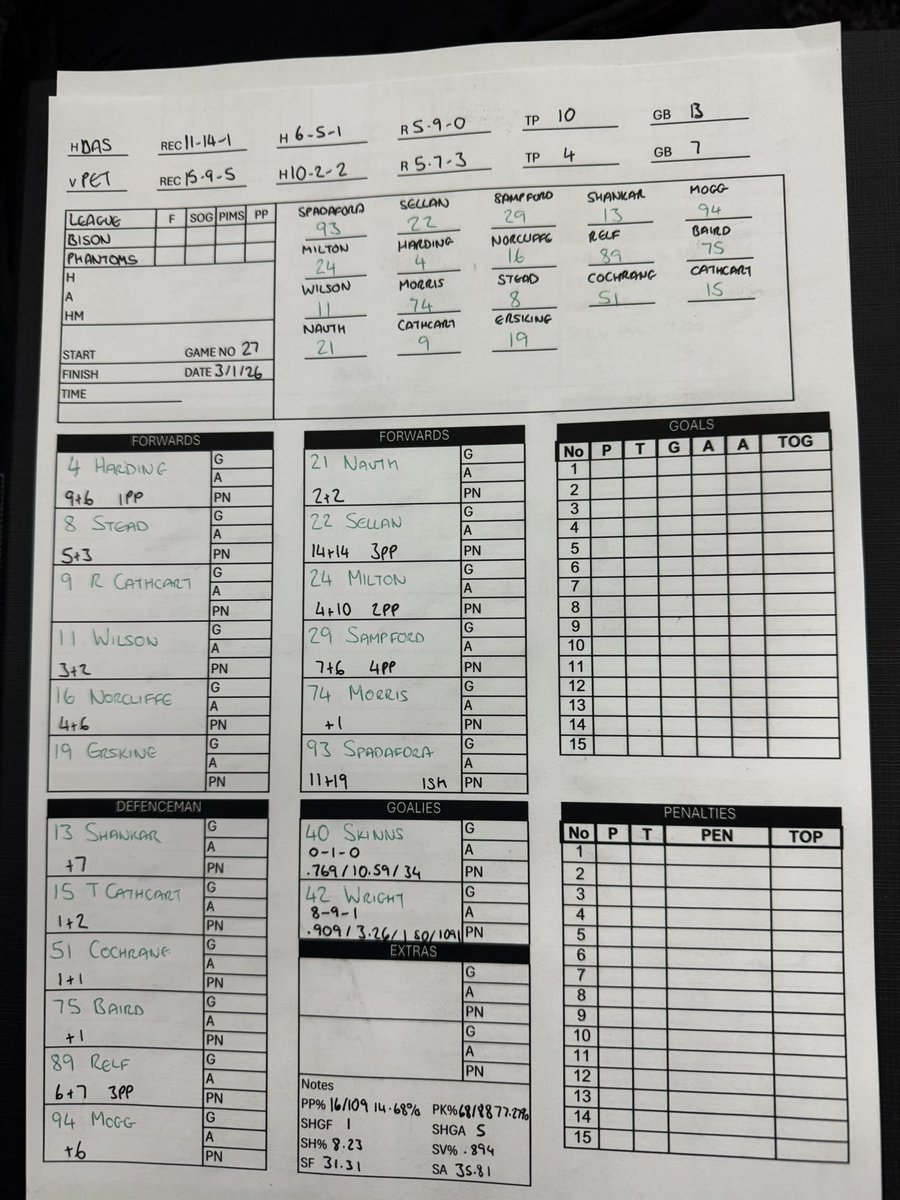 H BAS REC 11-14-1 H 6-5-1 R 5-9-0 TP 10 GB 13
V PET REC 15-9-5 H 10-2-2 R 5-7-3 TP 4 GB 7
LEAGUE F SOG PIMS PP
BISON
PHANTOMS
H
A
HM
START GAME NO 27
FINISH DATE 3/1/26
TIME
SPADAFORA SELLAN SAMPFORD SHANKAR MOGG
93 22 29 13 94
MILTON HARDING NORCLIFFE RELF BAIRD
24 4 16 89 75
WILSON MORRIS STEAD COCHRANE CATHCART
11 74 8 51 15
NAUTH CATHCART ERSKINE
21 9 19
FORWARDS
4 HARDING G
A
9+6 1PP PN
8 STEAD G
A
5+3 PN
9 R CATHCART G
A
PN
11 WILSON G
A
3+2 PN
16 NORCLIFFE G
A
4+6 PN
19 ERSKINE G
A
PN
FORWARDS
21 NAUTH G
A
2+2 PN
22 SELLAN G
A
14+14 3PP PN
24 MILTON G
A
4+10 2PP PN
29 SAMPFORD G
A
7+6 4PP PN
74 MORRIS G
A
+1 PN
93 SPADAFORA G
A
11+19 1SH PN
GOALS
No P T G A A TOG
1
2
3
4
5
6
7
8
9
10
11
12
13
14
15
DEFENCEMAN
13 SHANKAR G
A
+7 PN
15 T CATHCART G
A
1+2 PN
51 COCHRANE G
A
1+1 PN
75 BAIRD G
A
+1 PN
89 RELF G
A
6+7 3PP PN
94 MOGG G
A
+6 PN
GOALIES
40 SKINNS G
0-1-0 A
.769/10.59/34 PN
42 WRIGHT G
8-9-1 A
.909/3.26/1 SO/1091 PN
EXTRAS
G
A
PN
G
A
PN
Notes
PP% 16/109 14.68% PK% 68/88 77.27%
SHGF 1 SHGA 5
SH% 8.23 SV% .894
SF 31.31 SA 35.81
PENALTIES
No P T PEN TOP
1
2
3
4
5
6
7
8
9
10
11
12
13
14
15